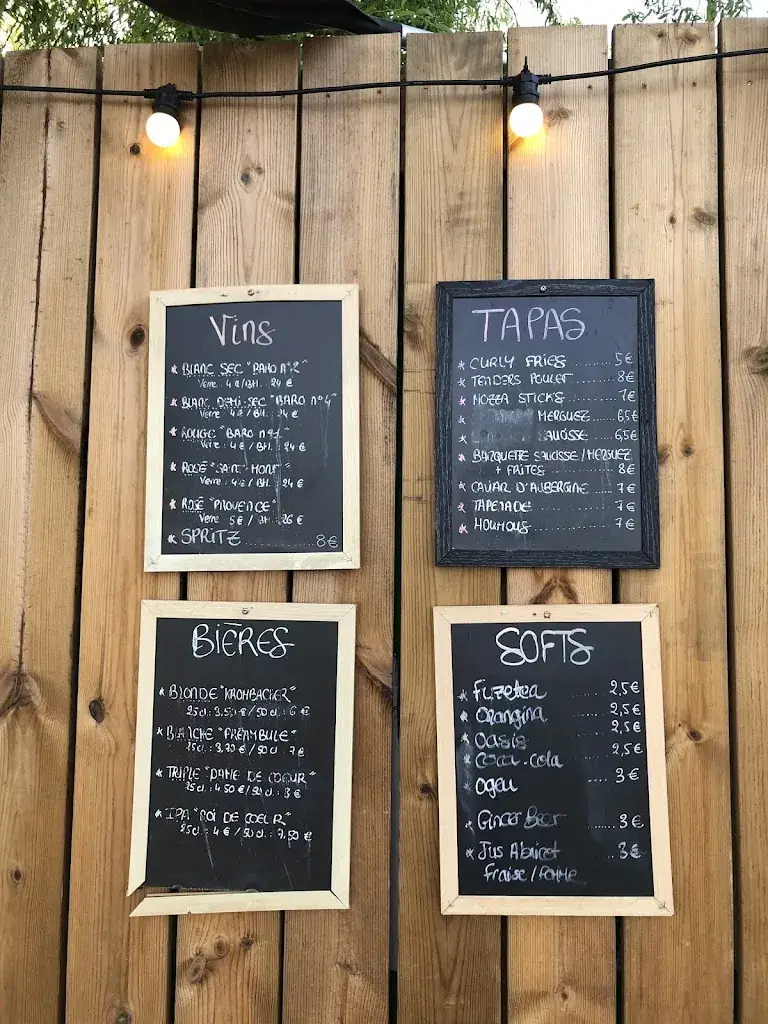 Vins
* BLANC SEC "BARO n°2"
Verre : 4€/BH. 24€
* BLANC DEMI-SEC "BARO n°4"
Verre : 4€ / BH. 24€
* ROUGE "BARO n°1"
Verre : 4€ / BH. : 24€
* ROSÉ "SAINT-MONT"
Verre : 4€ / BH. : 24€
* ROSÉ "PROVENCE"
Verre 5€ / BH. 26€
* SPRITZ .......... 8€
TAPAS
* CURLY FRIES ........ 5€
* TENDERS POULET ..... 8€
* MOZZA STICKS ....... 7€
* MERGUEZ 6,5€
* SAUCISSE ...... 6,5€
* BARQUETTE SAUCISSE/MERGUEZ
+ FRITES ............ 8€
* CAVIAR D'AUBERGINE .... 7€
* TAPENADE ............ 7€
* HOUMOUS ............. 7€
BIÈRES
* BLONDE "KROMBACHER"
25cl : 3,50€ / 50cl : 6€
* BLANCHE "PRÉAMBULE"
25cl : / 50cl : 7€
* TRIPLE "DAME DE COEUR"
25cl : 4.50€ / 50cl :
* IPA "ROI DE COEUR"
25cl : 4€ / 50cl : 7,50€
SOFTS
* Fuzetea ...... 2,5€
* Orangina ...... 2,5€
* Oasis ...... 2,5€
* Coca-cola ...... 2,5€
* Ogeu .... 3€
* Ginger Beer ...... 3€
* Jus Abricot .. 3€
Fraise/Pomme